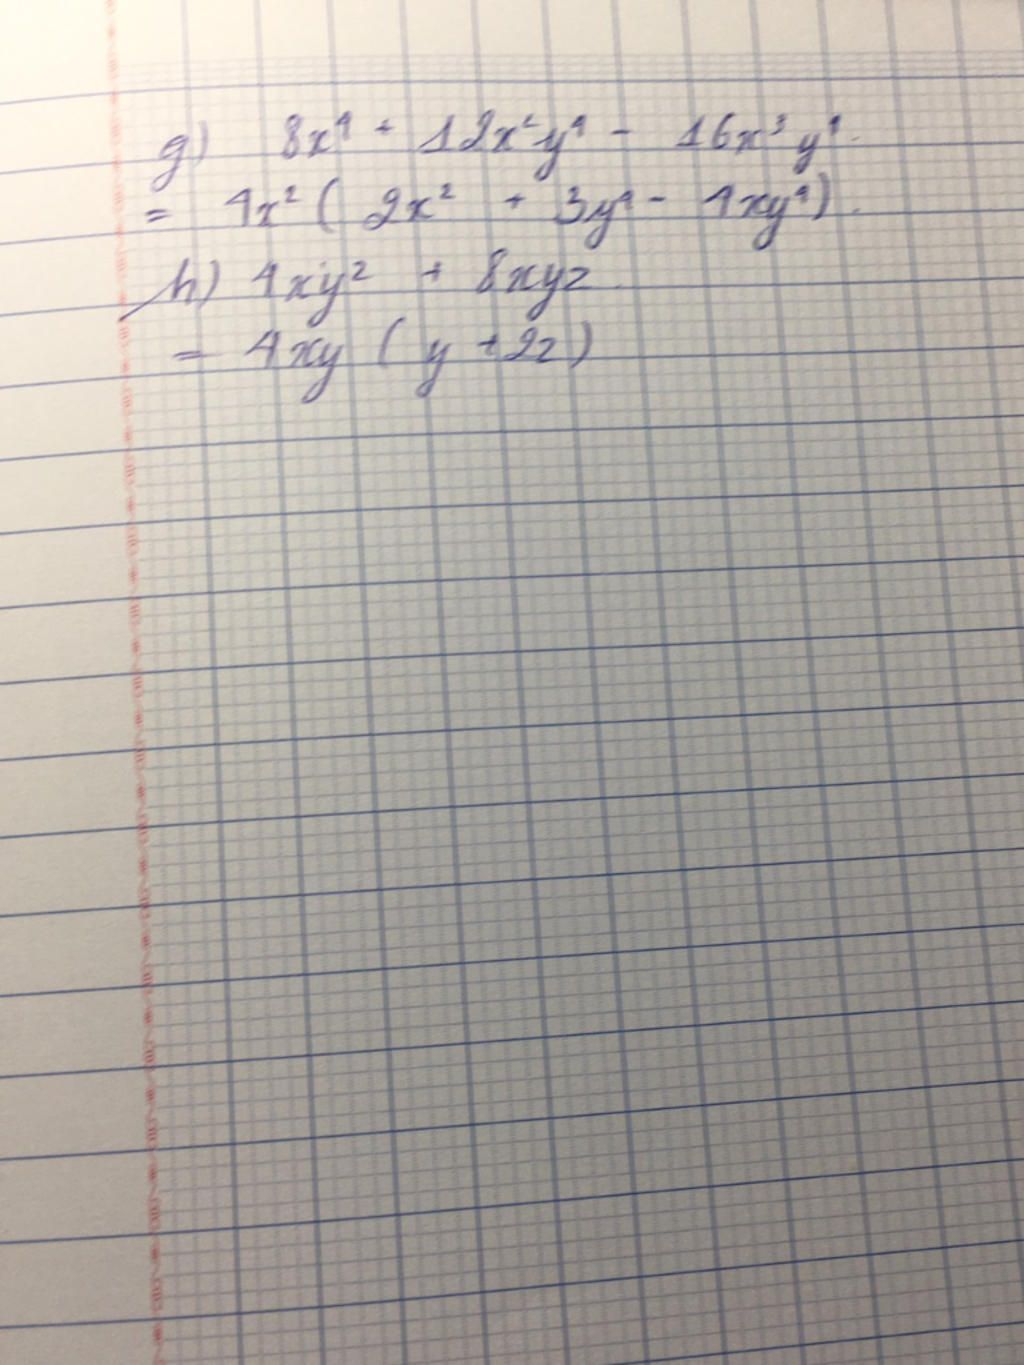 g) 8x⁴ + 12x²y⁴ - 16x³y⁴.
= 4x² ( 2x² + 3y⁴ - 4xy⁴).
h) 4xy² + 8xyz.
= 4xy ( y + 2z )